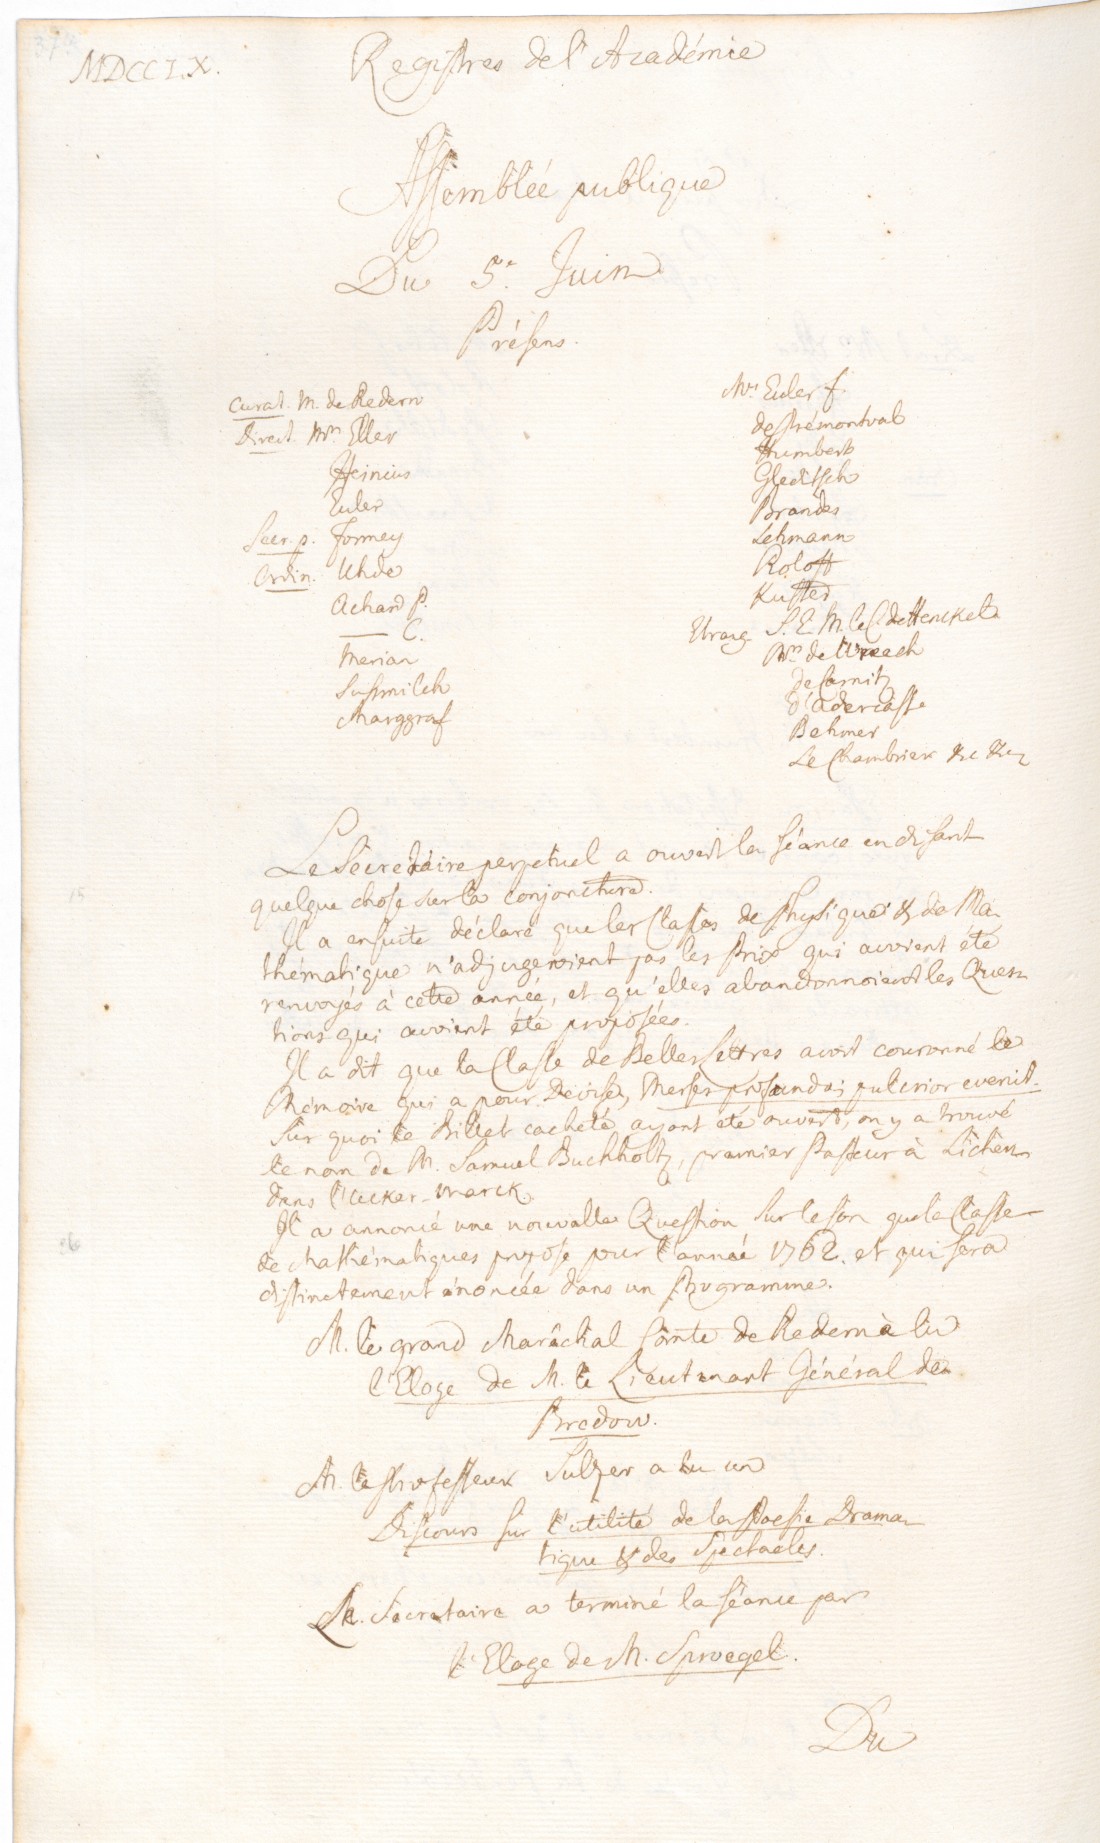 MDCCLX.
Registres de l'Académie
Assembléé publique
Du 5e Juin
Présens.
Curat. M. de Redern
Direct. Mrs Eller
Heinius
Euler
Secr. p. Formey
Ordin. Uhde
Achard P.
—— C.
Merian
Susmilch
Marggraf
Mrs Euler f.
de Prémontval
Humbert
Gleditsch
Brandes
Lehmann
Roloff
Küster
Etrang. S. E. M. le C. de Henckel
Mrs de Wreech
d'Adercasse
Behmer
Le Chambrier &c &c
Le Sécretaire perpetuel a ouvert la séance en disant
quelque chose sur la conjoncture.
Il a ensuite déclaré que les Classes de Physique & de Ma-
thématique n'adjugeroient pas les Prix qui avoient été
renvoyés à cette année, et qu'elles abandonnoient les Ques-
tions qui avoient été proposées.
Il a dit que la Classe de Belles Lettres avoit couronné le
Mémoire qui a pour Devise, Merses profundo; pulcrior evenit.
Sur quoi le Billet cacheté ayant été ouvert, on y a trouvé
le nom de M. Samuel Buchholtz, premier Pasteur à Lichen
dans l'Ucker-Marck.
Il a annoncé une nouvelle Question sur le son que la Classe
de Mathématiques propose pour l'année 1762. et qui sera
distinctement énoncée dans un Programme.
M. le grand Maréchal Comte de Redern a lu
l'Eloge de M. le Lieutenant Général de
Bredow.
M. le Professeur Sulzer a lu un
Discours sur l'utilité de la Poesie Drama-
tique & des Spectacles.
Le Sécretaire a terminé la séance par
l'Eloge de M. Sproegel.
Du